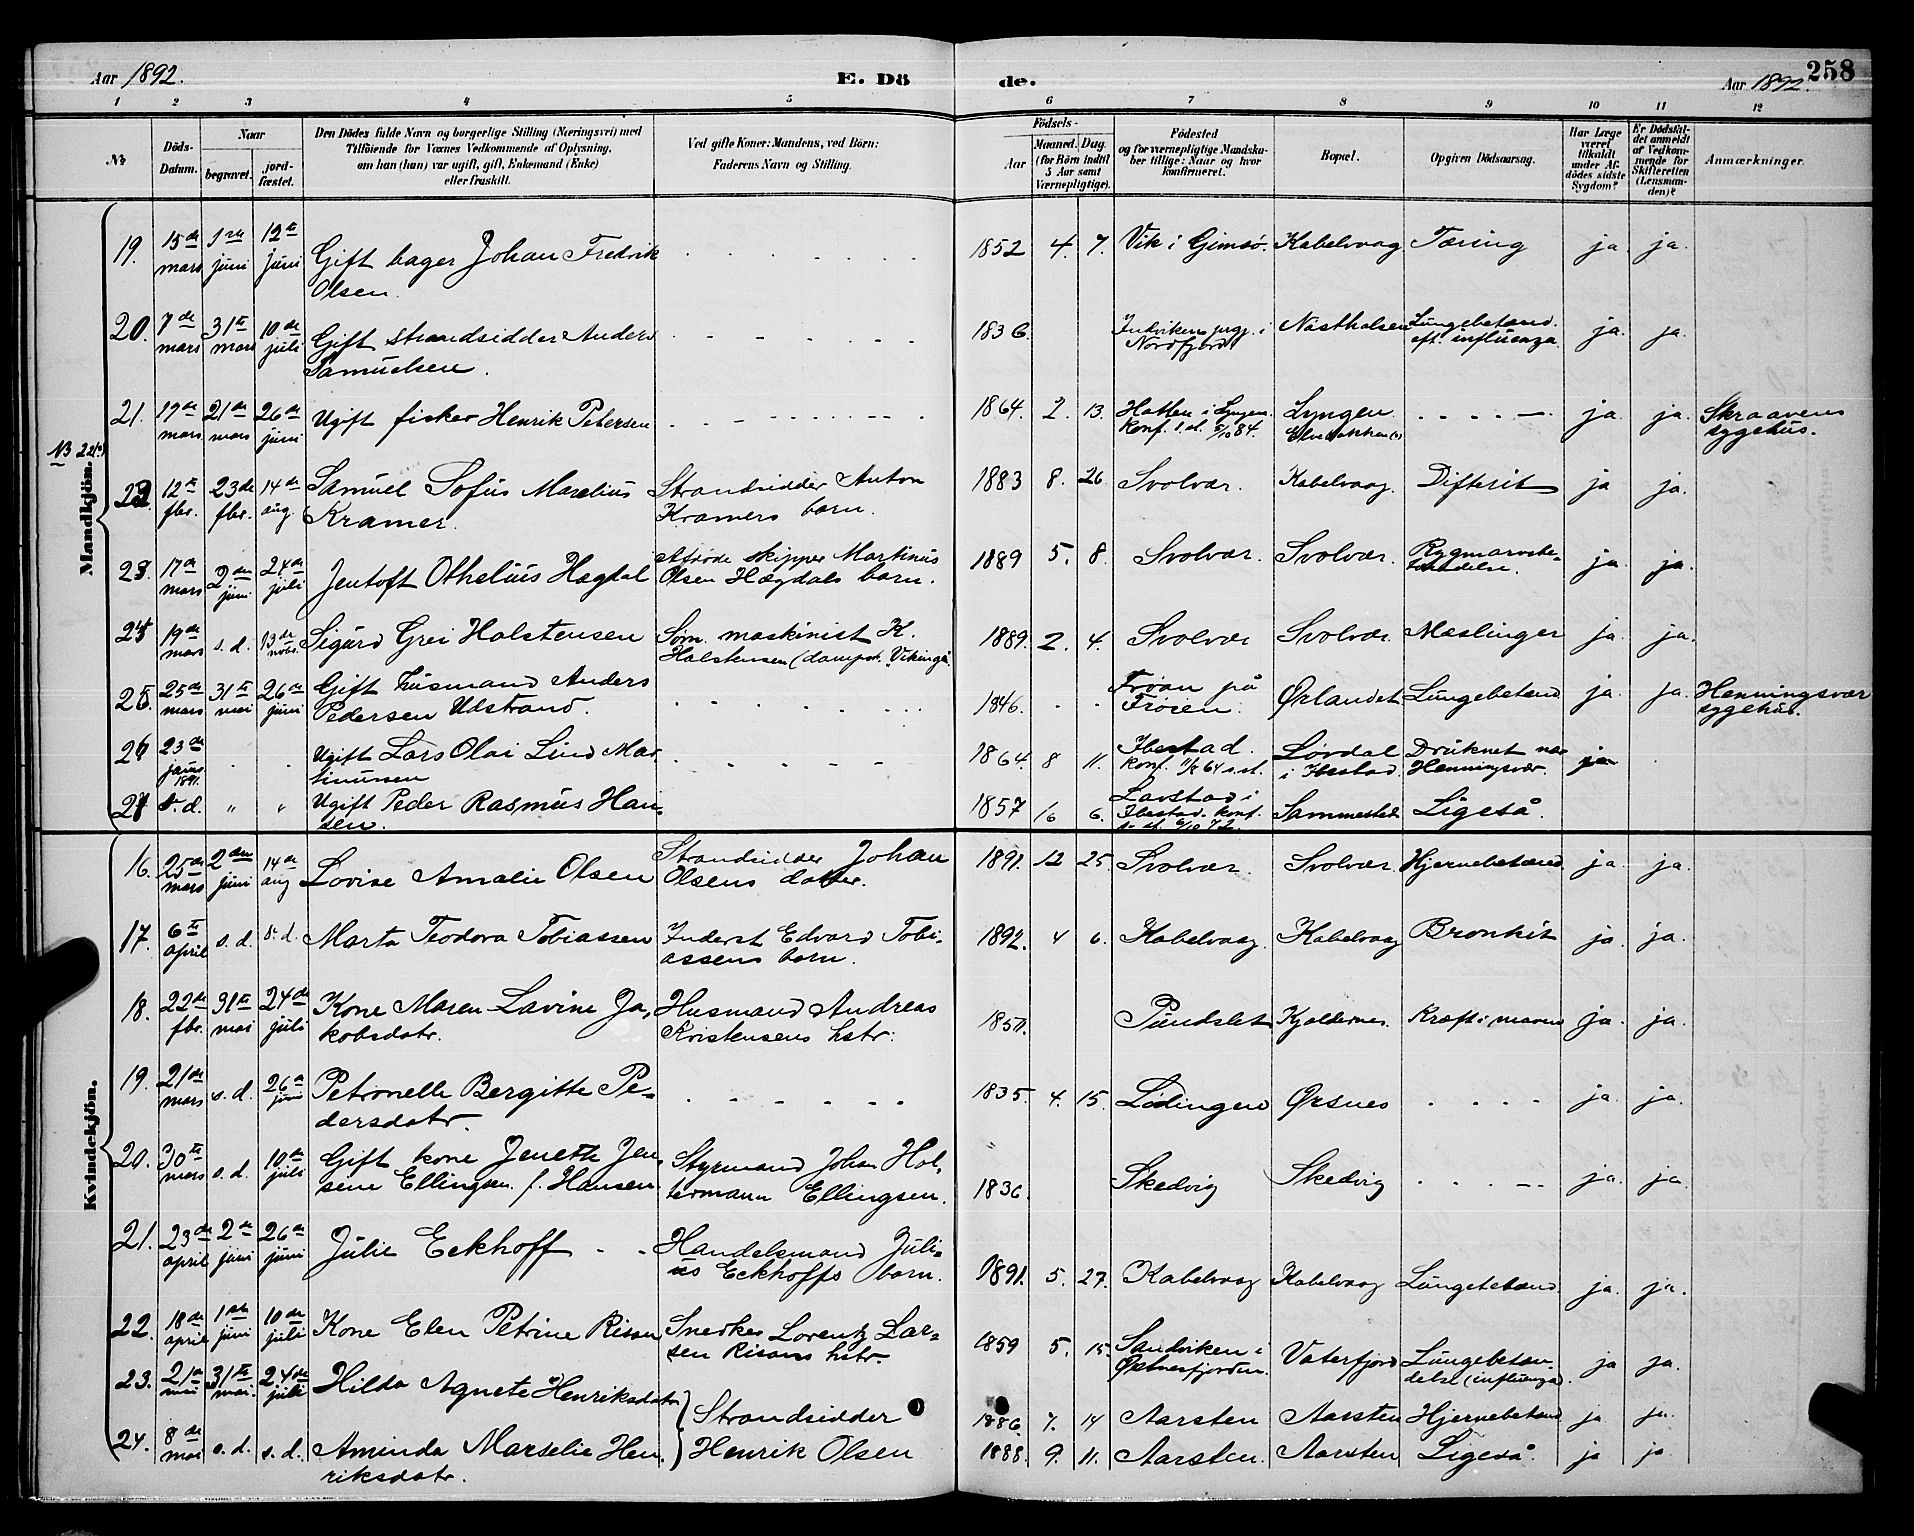 Aar 1892.
E. Dö
de.
Aar 1892.
258
1 2 3 4 5 6 7 8 9 10 11 12
No
Döds-
Datum.
Naar
begravet.
jord-
fæstet.
Den Dödes fulde Navn og borgerlige Stilling (Næringsvei) med
Tilföiende for Voxnes Vedkommende af Oplysning,
om han (hun) var ugift, gift, Enkemand (Enke)
eller fraskilt.
Ved gifte Koner: Mandens, ved Börn:
Faderens Navn og Stilling.
Födsels-
Aar
Maaned. Dag.
(for Börn indtil
5 Aar samt
Værnepligtige).
Födested
og for værnepligtige Mandska-
ber tillige: Naar og hvor
konfirmeret.
Bopæl.
Opgiven Dödsaarsag.
Har Læge
været
tilkaldt
under Af-
dödes sidste
Sygdom?
Er Dödsfal-
det anmeldt
af Vedkom-
mende for
Skifteretten
(Lensman-
den)?
Anmærkninger.
Mandkjön.
19. 15de mars 1ste juni 12te juni Gift bager Johan Fredrik Olsen. 1852 4. 7. Vik i Gimsö. Kabelvaag Tæring ja. ja.
20. 7de mars 31te mars 10de juli Gift strandsidder Anders Samuelsen. 1836. Indviken prgj. i Nordfjord Nastholsen Lungebetænd. eft. influenza. ja. ja.
21. 17de mars 21de mars 26de juni Ugift fisker Henrik Petersen 1864. 2. 13. i Lyngen. konf. s. st. 5/10 84. Lyngen ja. ja. Skraavens sygehus.
22. 12te fbr. 23de fbr. 14de aug Samuel Sofus Marelius Kramer. Strandsidder Anton Kramers barn. 1883 8. 26. Svolvær. Kabelvaag. Difterit ja ja.
23. 17de mars 2den juni 24de juli Jentoft Othelius Hægdal Afdøde skipper Martinus Olsen Hægdals barn. 1889 5. 8. Svolvær. Svolvær. Rygmarvsbetændelse. ja. ja.
24. 19de mars s. d. 13de novbr. Sigurd Grei Holstensen Søm. maskinist K. Holstensen (dampsk. "Vikingen" 1889. 2. 4. Svolvær Svolvær. Mæslinger ja. ja.
25. 25de mars 31te mai 26de juni Gift husmand Anders Pedersen Udstrand. 1846. Frøan på Frosen. Ørlandet Lungebetænd ja. ja. Henningsvær sygehus.
26. 23de janr. 1891. Ugift Lars Olai Lind Martinussen 1864. 8 11. Ibestad. konf. s. st. Løvdal i Ibestad. Druknet nær Henningsvær. ja
27. s. d. " " Ugift Peder Rasmus Hansen. 1857 6. Lavstad i Ibestad. konf. s. st. 6/10 72. Sammested Ligeså.
Kvindekjön.
16. 25de mars 2den juni 14de aug Lovise Amalie Olsen Strandsidder Johan Olsens datter. 1891. 12 25. Svolvær. Svolvær. Hjernebetænd ja. ja.
17. 6te april s. d. s. d. Marta Teodora Tobiassen Inderst Edvard Tobiassens barn. 1892. 4 6. Kabelvaag. Kabelvaag Bronkit ja. ja.
18. 22de fbr. 31te mai 24de juli Kone Maren Lavine Jakobsdatr. Husmand Andreas Kristensens hstr. 1851. Pundslet Kjeldernes. Kræft i maven ja. ja.
19. 21de mars s. d. 26de juni Petronelle Bergitte Pedersdatr. 1835. 4. 15. Lødingen Ørsnes ja. ja.
20. 30te mars s. d. 10de juli Gift kone Jenette Jensine Ellingsen f. Hansen. Styrmand Johan Holtermann Ellingsen. 1836. Skedvig Skedvig ja. ja.
21. 23de april 2de juni 26de juni Julie Eckhoff Handelsmand Julius Eckhoffs barn. 1891. 5. 27. Kabelvaag Kabelvaag Lungebetænd ja. ja.
22. 18de april 1ste juni 10de juli Kone Elen Petrine Risan Snedker Lorentz Larsen Risans hstr. 1859 5. 15. Sandviken i Østnesfjorden. Vaterfjord Lungebetændelse (influenza) ja ja.
23. 21de mai 31te mai. 24de juli Hilda Agnete Henriksdatr Strandsidder Henrik Olsen 1886 7. 14 Aarsten Aarsten Hjernebetænd ja ja.
24. 8de mai s. d. s. d. Aminda Marselie Henriksdatr. 1888. 9. 11. Aarsten. Aarsten Ligeså. ja ja.